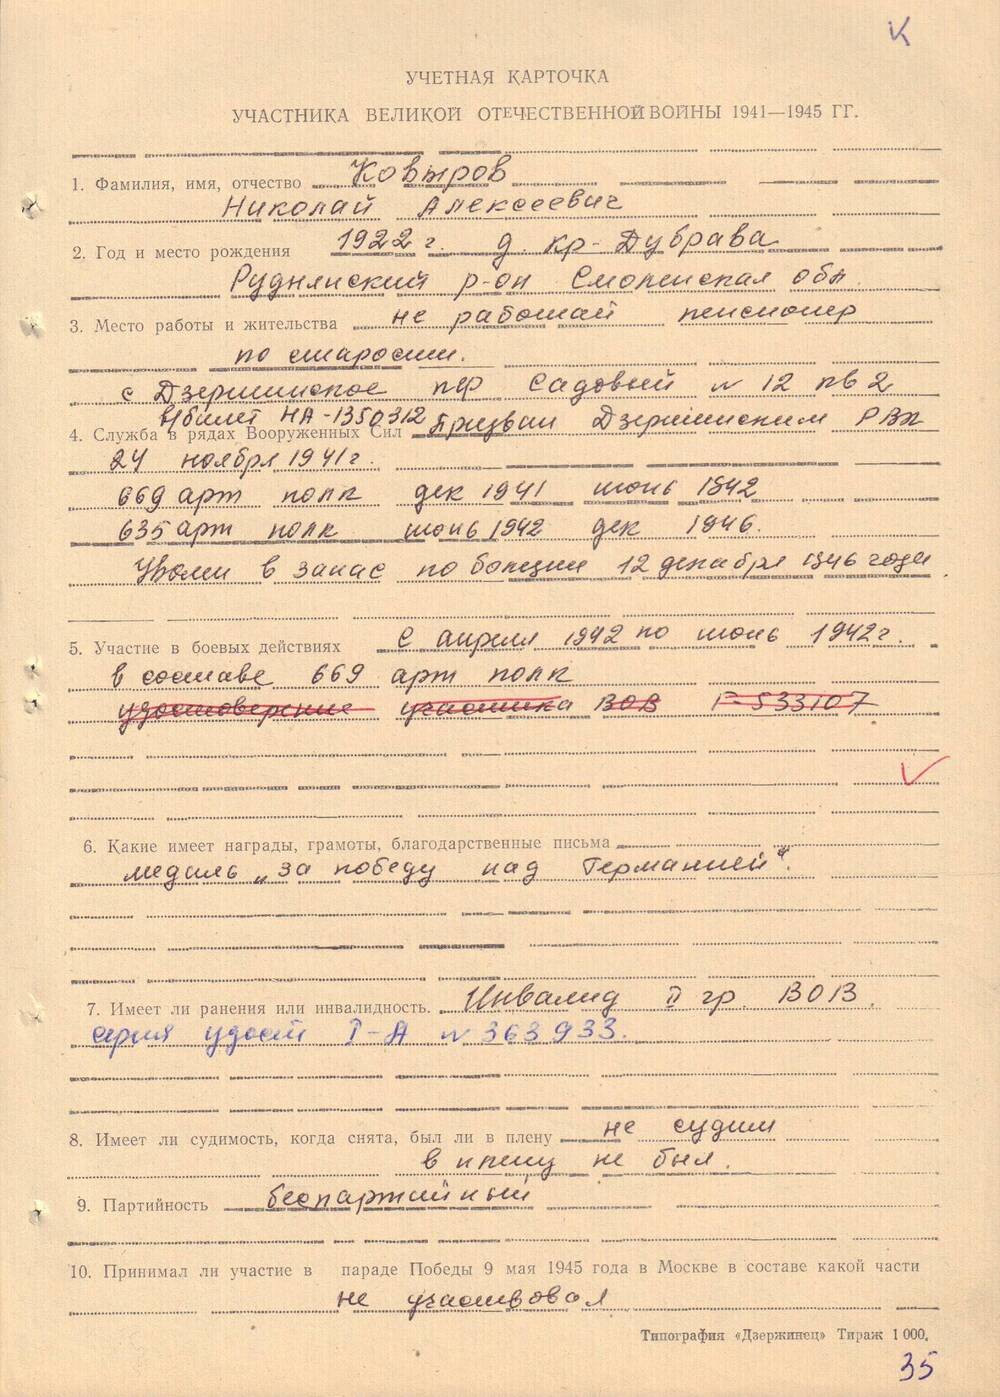 К
УЧЕТНАЯ КАРТОЧКА
УЧАСТНИКА ВЕЛИКОЙ ОТЕЧЕСТВЕННОЙ ВОЙНЫ 1941—1945 ГГ.
1. Фамилия, имя, отчество Ковыров
Николай Алексеевич
2. Год и место рождения 1922 г. д. Кр-Дубрава
Руднянский р-он Смоленская обл.
3. Место работы и жительства не работай пенсионер
по старости.
с Дзержинское пер Садовый № 12 кв 2
в/билет НА-1350312
4. Служба в рядах Вооруженных Сил Призван Дзержинским РВК
24 ноября 1941 г.
669 арт полк дек 1941 июнь 1942
635 арт полк июнь 1942 дек 1946.
Уволен в запас по болезни 12 декабря 1946 года
5. Участие в боевых действиях С апреля 1942 по июнь 1942 г.
в составе 669 арт полк
удостоверение участника ВОВ Г-533107
6. Какие имеет награды, грамоты, благодарственные письма
медаль „за победу над Германией".
7. Имеет ли ранения или инвалидность. Инвалид II гр. ВОВ.
серия удост I-А № 363933.
8. Имеет ли судимость, когда снята, был ли в плену не судим
в плену не был.
9. Партийность беспартийный
10. Принимал ли участие в параде Победы 9 мая 1945 года в Москве в составе какой части
не участвовал
Типография «Дзержинец» Тираж 1 000.
35